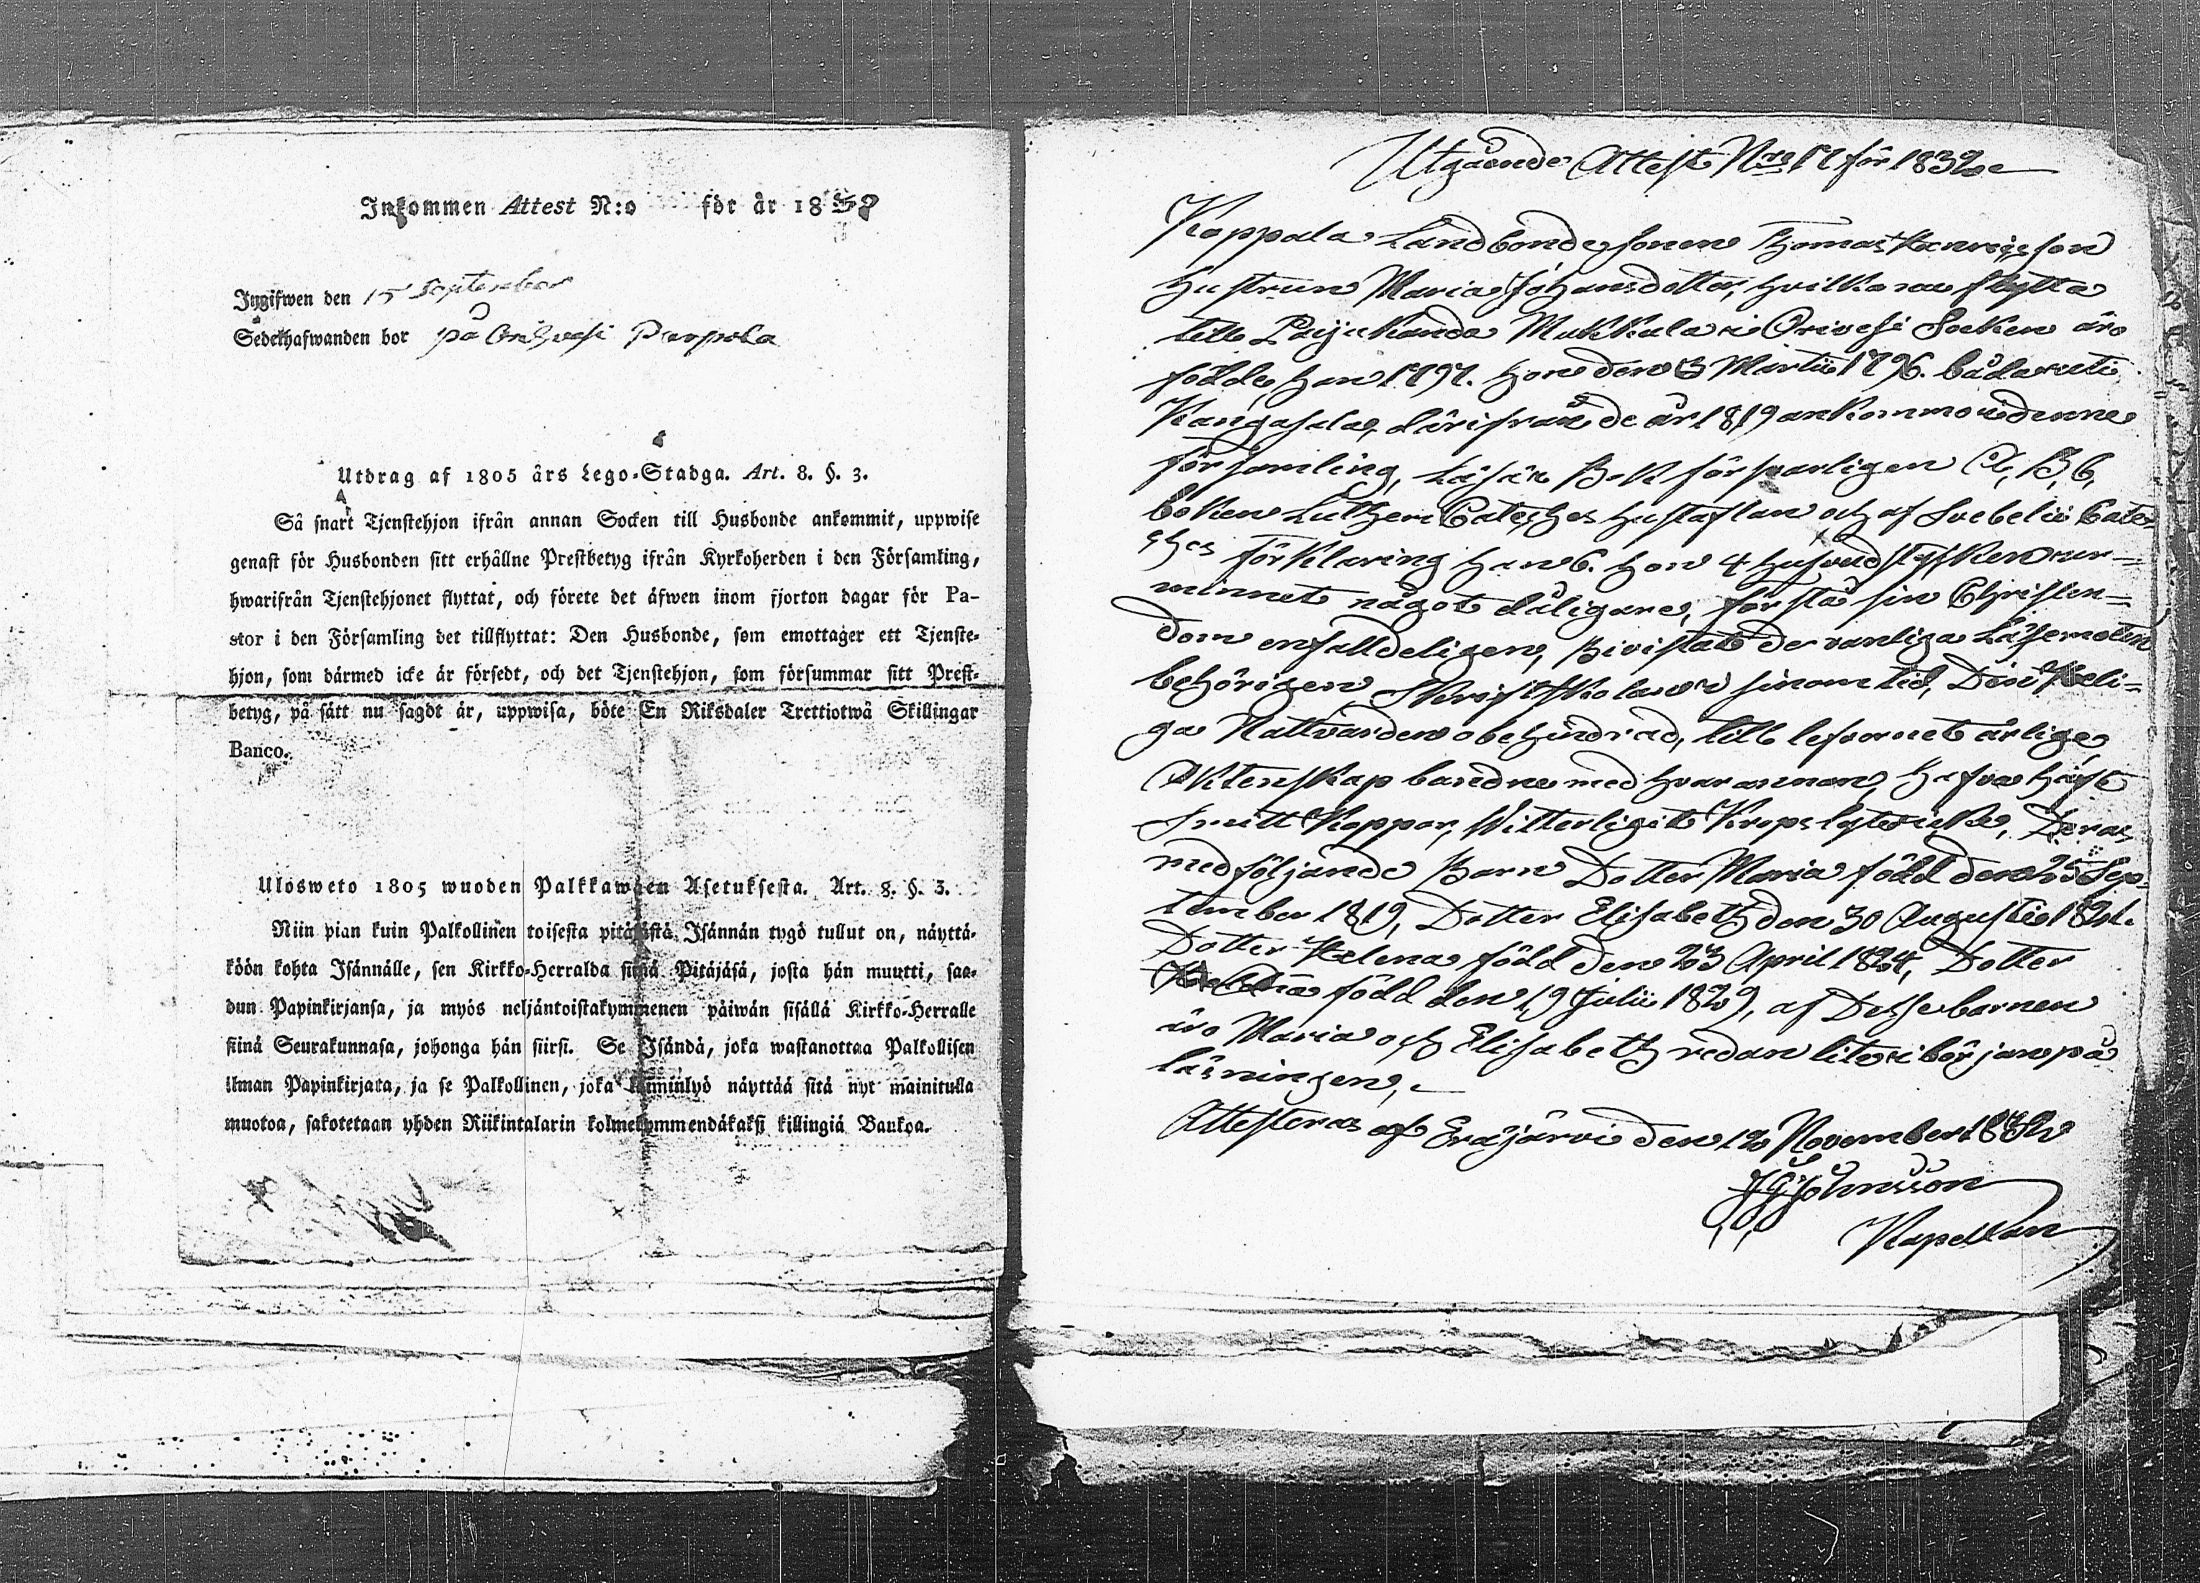 Inkommen Attest N:o för år 18
Ingifwen den 15 September
Sedelhafwanden bor på Orihvesi Parpola
Utdrag af 1805 års Lego-Stadga. Art. 8. §. 3.
Så snart Tjenstehjon ifrån annan Socken till Husbonde ankommit, uppwise
genast för Husbonden sitt erhållne Prestbetyg ifrån Kyrkoherden i den Församling,
hwarifrån Tjenstehjonet flyttat, och förete det äfwen inom fjorton dagar för Pa-
stor i den Församling det tillflyttat: Den Husbonde, som emottager ett Tjenste-
hjon, som därmed icke är försedt, och det Tjenstehjon, som försummar sitt Prest-
betyg, på sätt nu sagdt är, uppwisa, böte En Riksdaler Trettiotwå Skillingar
Banco.
Ulosweto 1805 wuoden Palkkawäen Asetuksesta. Art. 8. §. 3.
Niin pian kuin Palkollinen toisesta pitäjästä Isännän tygö tullut on, näyttä-
köön kohta Isännälle, sen Kirkko-Herralda siinä Pitäjäsä, josta hän muutti, saa-
dun Papinkirjansa, ja myös neljäntoistakymmenen päiwän sisällä Kirkko-Herralle
siinä Seurakunnasa, johonga hän siirsi. Se Isändä, joka wastanottaa Palkollisen
ilman Papinkirjata, ja se Palkollinen, joka laiminlyö näyttää sitä nyt mainitulla
muotoa, sakotetaan yhden Riikintalarin kolmekymmendäkaksi killingiä Bankoa.
Utgående Attest Nro 17 för 1832
Koppala Landbondesonen Thomas Henricsson
Hustrun Maria Johansdotter, hvilka nu flytta
till Pajukanda Mukkala i Orivesi Socken äro
födde, han 1797. hon den 3 Martii 1796. båda uti
Kangasala, därifrån de år 1819 ankommo i denne
församling, Läsa i Bok försvarligen A, B, C,
boken Lutheri Cateches hustaflan och af Svebelii Cate-
ches förklaring han 6. hon 4 hufvudstycken ur
minnet något dåligare, förstå sin Christen=
dom enfalldeligen, Bivistat de vanliga Läsemöten
behörigen Skriftskolan i sinom tid, Den Heli=
ga Nattvarden obehindrad, till lefvernet ärlige,
Äktenskap bundne med hvarannan, hafva haft
Smitt Koppor, Witterligit Kropslyte icke, Deras
medföljande Barn Dotter Maria född den 25 Sep-
tember 1819, Dotter Elisabeth den 30 Augusti 1821.
Dotter Helena född den 23 April 1824, Dotter
född den 19 Julii 1829, af Desse barnen
äro Maria och Elisabeth redan lite i början på
läsningen,
Attesteras af Eräjärvi den 12 November 1832
J G Johnsson
Kapellan